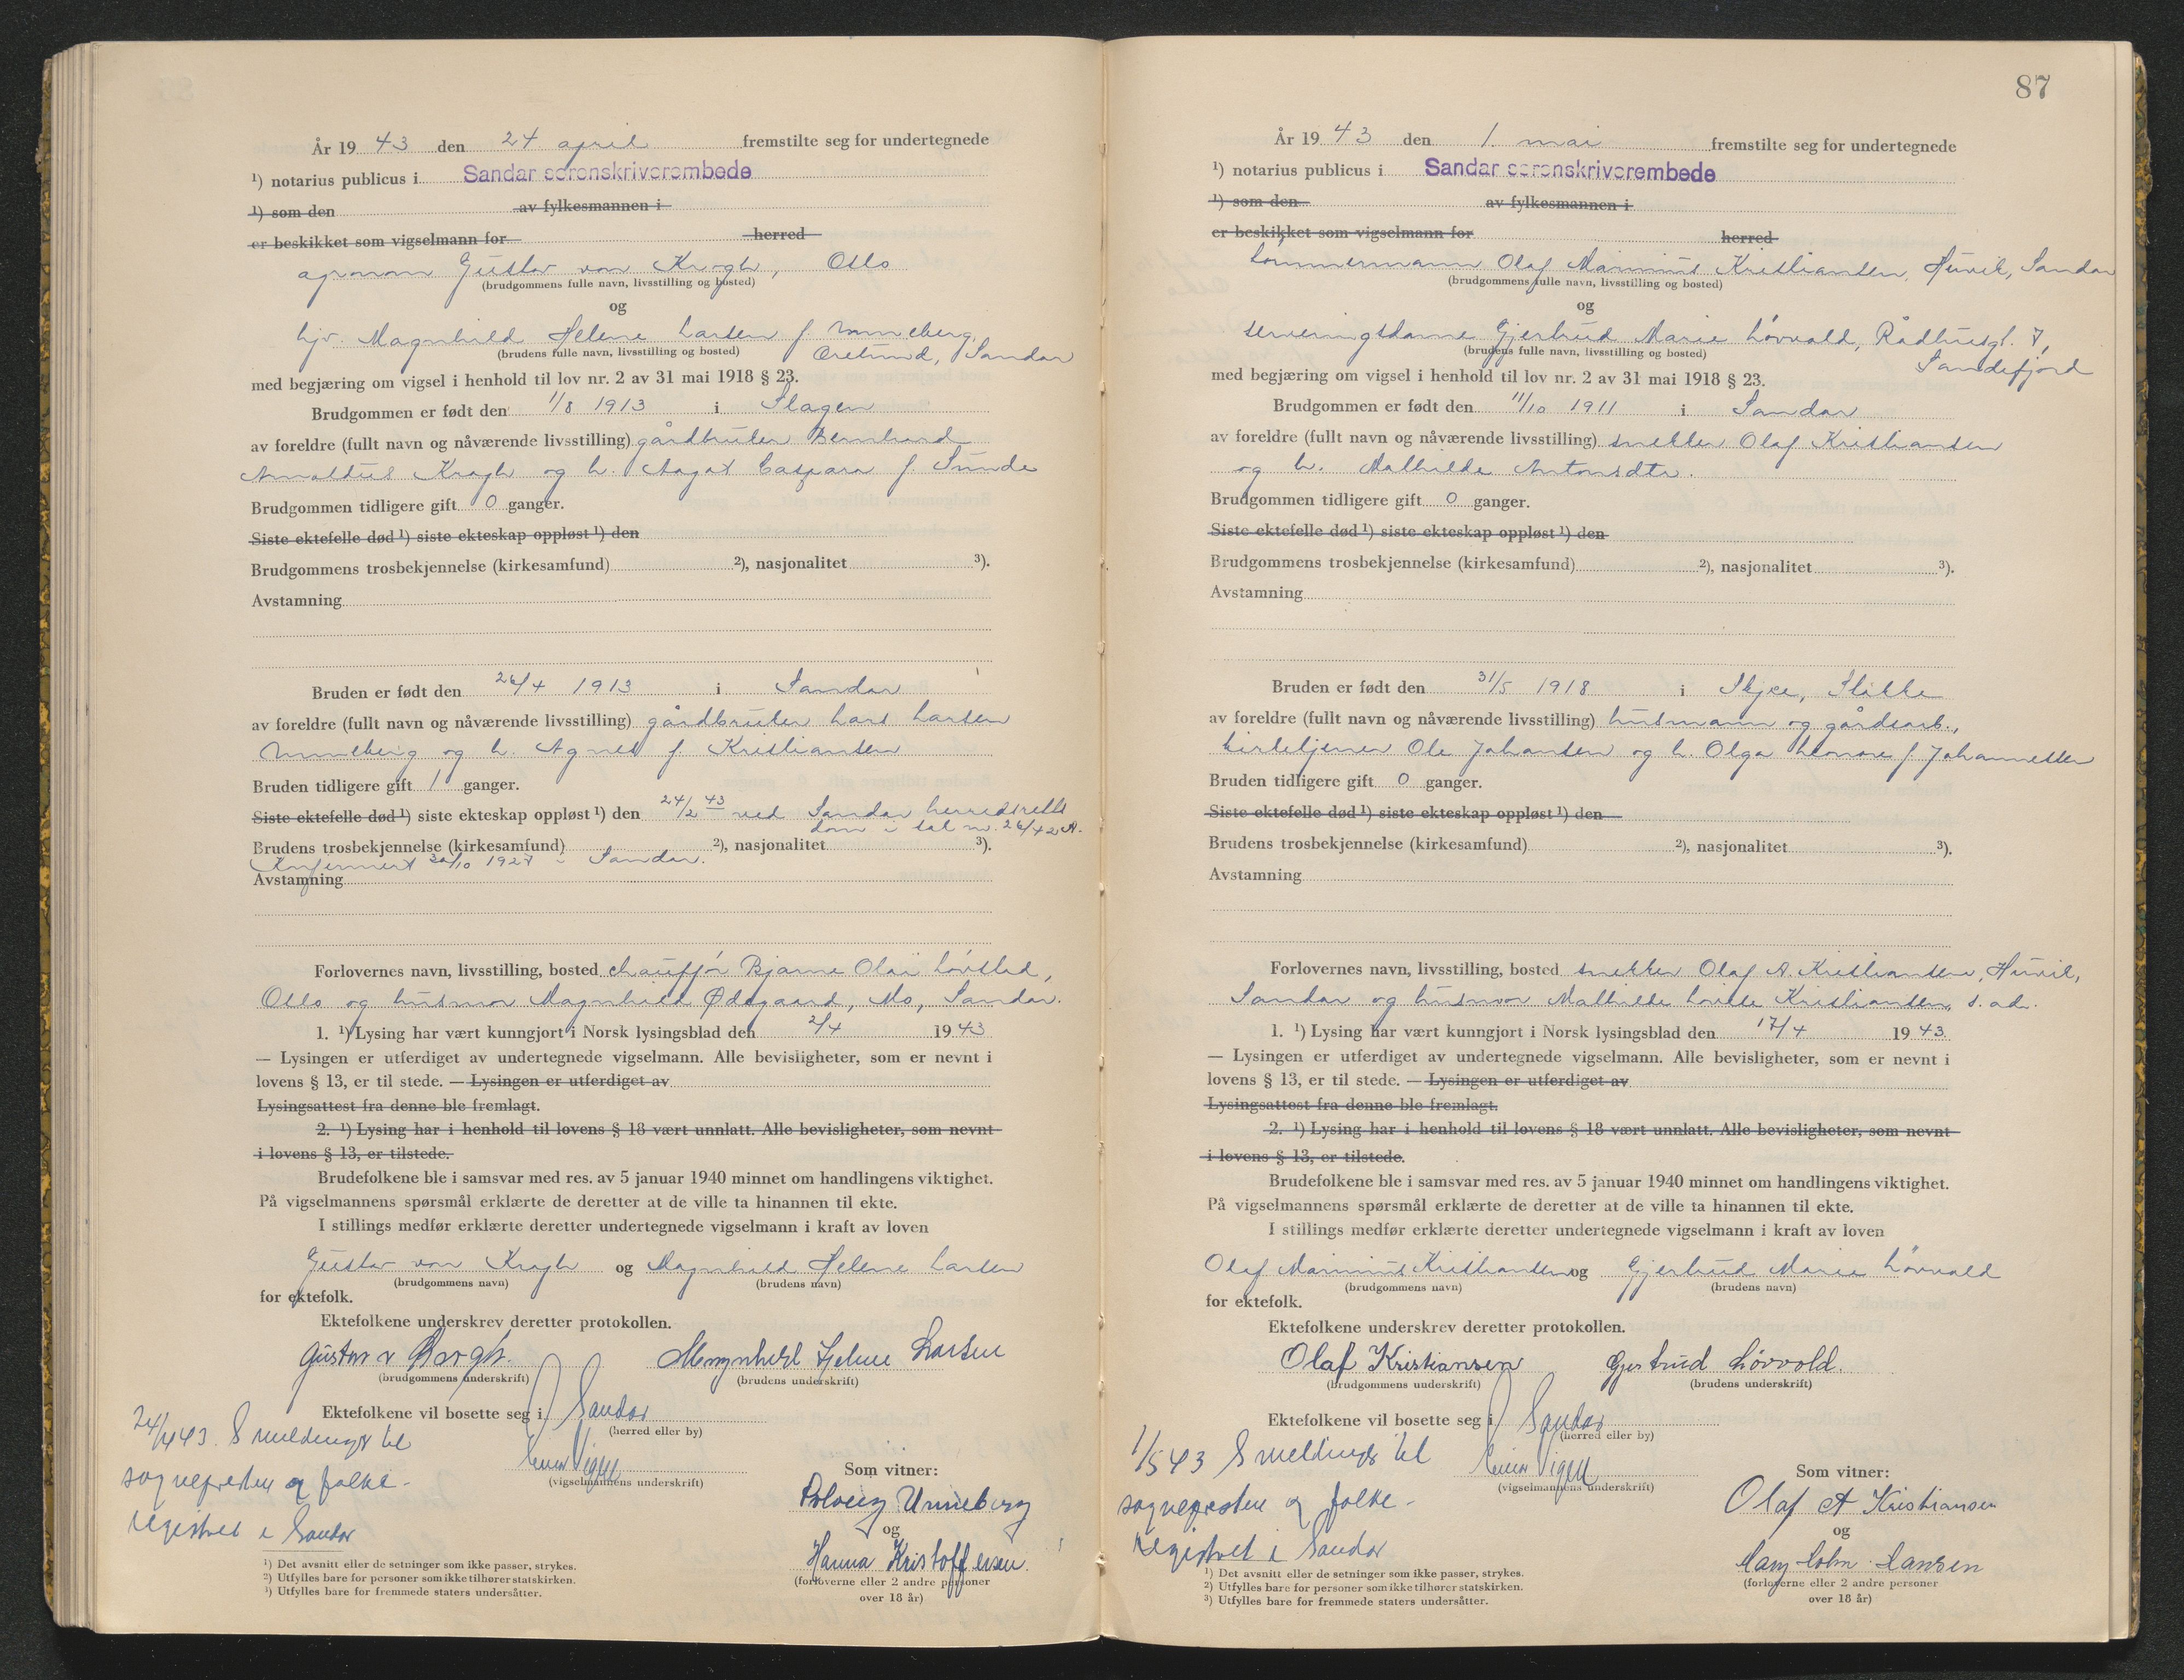 År 1943 den 24 april fremstilte seg for undertegnede
¹) notarius publicus i Sandar sorenskriverembede
¹) som den av fylkesmannen i
er beskikket som vigselmann for herred
agronom Gustav von Krogh, Oslo
(brudgommens fulle navn, livsstilling og bosted)
og
hjv. Magnhild Helene Larsen f. Unneberg,
(brudens fulle navn, livsstilling og bosted) Orelund, Sandar
med begjæring om vigsel i henhold til lov nr. 2 av 31 mai 1918 § 23.
Brudgommen er født den 1/8 1913 i Slagen
av foreldre (fullt navn og nåværende livsstilling) gårdbruker Bernhard
Arnoldus Krogh og h. Aagot Caspara f. Sunde
Brudgommen tidligere gift 0 ganger.
Siste ektefelle død ¹) siste ekteskap oppløst ¹) den
Brudgommens trosbekjennelse (kirkesamfund) ²), nasjonalitet ³).
Avstamning
Bruden er født den 26/4 1913 i Sandar
av foreldre (fullt navn og nåværende livsstilling) gårdbruker Lars Larsen
Unneberg og h. Agnes f. Kristiansen
Bruden tidligere gift 1 ganger.
Siste ektefelle død ¹) siste ekteskap oppløst ¹) den 24/2 43 ved Sandar herredsretts
dom i sak nr. 26/42 A.
Brudens trosbekjennelse (kirkesamfund) ²), nasjonalitet ³).
Konfirmert 30/10 1927 i Sandar.
Avstamning
Forlovernes navn, livsstilling, bosted chauffør Bjarne Olai Løvslad,
Oslo og husmor Magnhild Ødegaard, Mo, Sandar.
1. ¹) Lysing har vært kunngjort i Norsk lysingsblad den 2/4 1943
— Lysingen er utferdiget av undertegnede vigselmann. Alle bevisligheter, som er nevnt i
lovens § 13, er til stede. — Lysingen er utferdiget av
Lysingsattest fra denne ble fremlagt.
2. ¹) Lysing har i henhold til lovens § 18 vært unnlatt. Alle bevisligheter, som nevnt
i lovens § 13, er tilstede.
Brudefolkene ble i samsvar med res. av 5 januar 1940 minnet om handlingens viktighet.
På vigselmannens spørsmål erklærte de deretter at de ville ta hinannen til ekte.
I stillings medfør erklærte deretter undertegnede vigselmann i kraft av loven
Gustav von Krogh og Magnhild Helene Larsen
(brudgommens navn) (brudens navn)
for ektefolk.
Ektefolkene underskrev deretter protokollen.
Gustav v Krogh. Magnhild Helene Larsen
(brudgommens underskrift) (brudens underskrift)
Ektefolkene vil bosette seg i Sandar
(herred eller by)
24/4 43. S meldinger til
sognepresten og folke-
registret i Sandar
Einar Vigen
(vigselmannens underskrift)
Som vitner:
Solveig Unneberg
og
Hanna Kristoffersen.
(forloverne eller 2 andre personer
over 18 år)
¹) Det avsnitt eller de setninger som ikke passer, strykes.
²) Utfylles bare for personer som ikke tilhører statskirken.
³) Utfylles bare for fremmede staters undersåtter.
87
År 1943 den 1. mai fremstilte seg for undertegnede
¹) notarius publicus i Sandar sorenskriverembede
¹) som den av fylkesmannen i
er beskikket som vigselmann for herred
tømmermann Olaf Marinius Kristiansen, Huvik, Sandar
(brudgommens fulle navn, livsstilling og bosted)
og
serveringsdame Gjertrud Marie Løvvald, Rådhusgt. 7,
(brudens fulle navn, livsstilling og bosted) Sandefjord
med begjæring om vigsel i henhold til lov nr. 2 av 31 mai 1918 § 23.
Brudgommen er født den 11/10 1911 i Sandar
av foreldre (fullt navn og nåværende livsstilling) snekker Olaf Kristiansen
og h. Mathilde Antonsdtr.
Brudgommen tidligere gift 0 ganger.
Siste ektefelle død ¹) siste ekteskap oppløst ¹) den
Brudgommens trosbekjennelse (kirkesamfund) ²), nasjonalitet ³).
Avstamning
Bruden er født den 31/5 1918 i Skjee, Stokke
av foreldre (fullt navn og nåværende livsstilling) husmann og gårdsarb.,
kirketjener Ole Johansen og h. Olga Lenore f. Johannessen
Bruden tidligere gift 0 ganger.
Siste ektefelle død ¹) siste ekteskap oppløst ¹) den
Brudens trosbekjennelse (kirkesamfund) ²), nasjonalitet ³).
Avstamning
Forlovernes navn, livsstilling, bosted snekker Olaf A. Kristiansen, Huvik,
Sandar og husmor Mathilde Lovise Kristiansen, s. ad.
1. ¹) Lysing har vært kunngjort i Norsk lysingsblad den 17/4 1943.
— Lysingen er utferdiget av undertegnede vigselmann. Alle bevisligheter, som er nevnt i
lovens § 13, er til stede. — Lysingen er utferdiget av
Lysingsattest fra denne ble fremlagt.
2. ¹) Lysing har i henhold til lovens § 18 vært unnlatt. Alle bevisligheter, som nevnt
i lovens § 13, er tilstede.
Brudefolkene ble i samsvar med res. av 5 januar 1940 minnet om handlingens viktighet.
På vigselmannens spørsmål erklærte de deretter at de ville ta hinannen til ekte.
I stillings medfør erklærte deretter undertegnede vigselmann i kraft av loven
Olaf Marinius Kristiansen og Gjertrud Marie Løvvald
(brudgommens navn) (brudens navn)
for ektefolk.
Ektefolkene underskrev deretter protokollen.
Olaf Kristiansen Gjertrud Løvvold.
(brudgommens underskrift) (brudens underskrift)
Ektefolkene vil bosette seg i Sandar
(herred eller by)
1/5 43 S meldinger til
sognepresten og folke-
registret i Sandar
Einar Vigen
(vigselmannens underskrift)
Som vitner:
Olaf A Kristiansen
og
Mary Holm-Hansen
(forloverne eller 2 andre personer
over 18 år)
¹) Det avsnitt eller de setninger som ikke passer, strykes.
²) Utfylles bare for personer som ikke tilhører statskirken.
³) Utfylles bare for fremmede staters undersåtter.